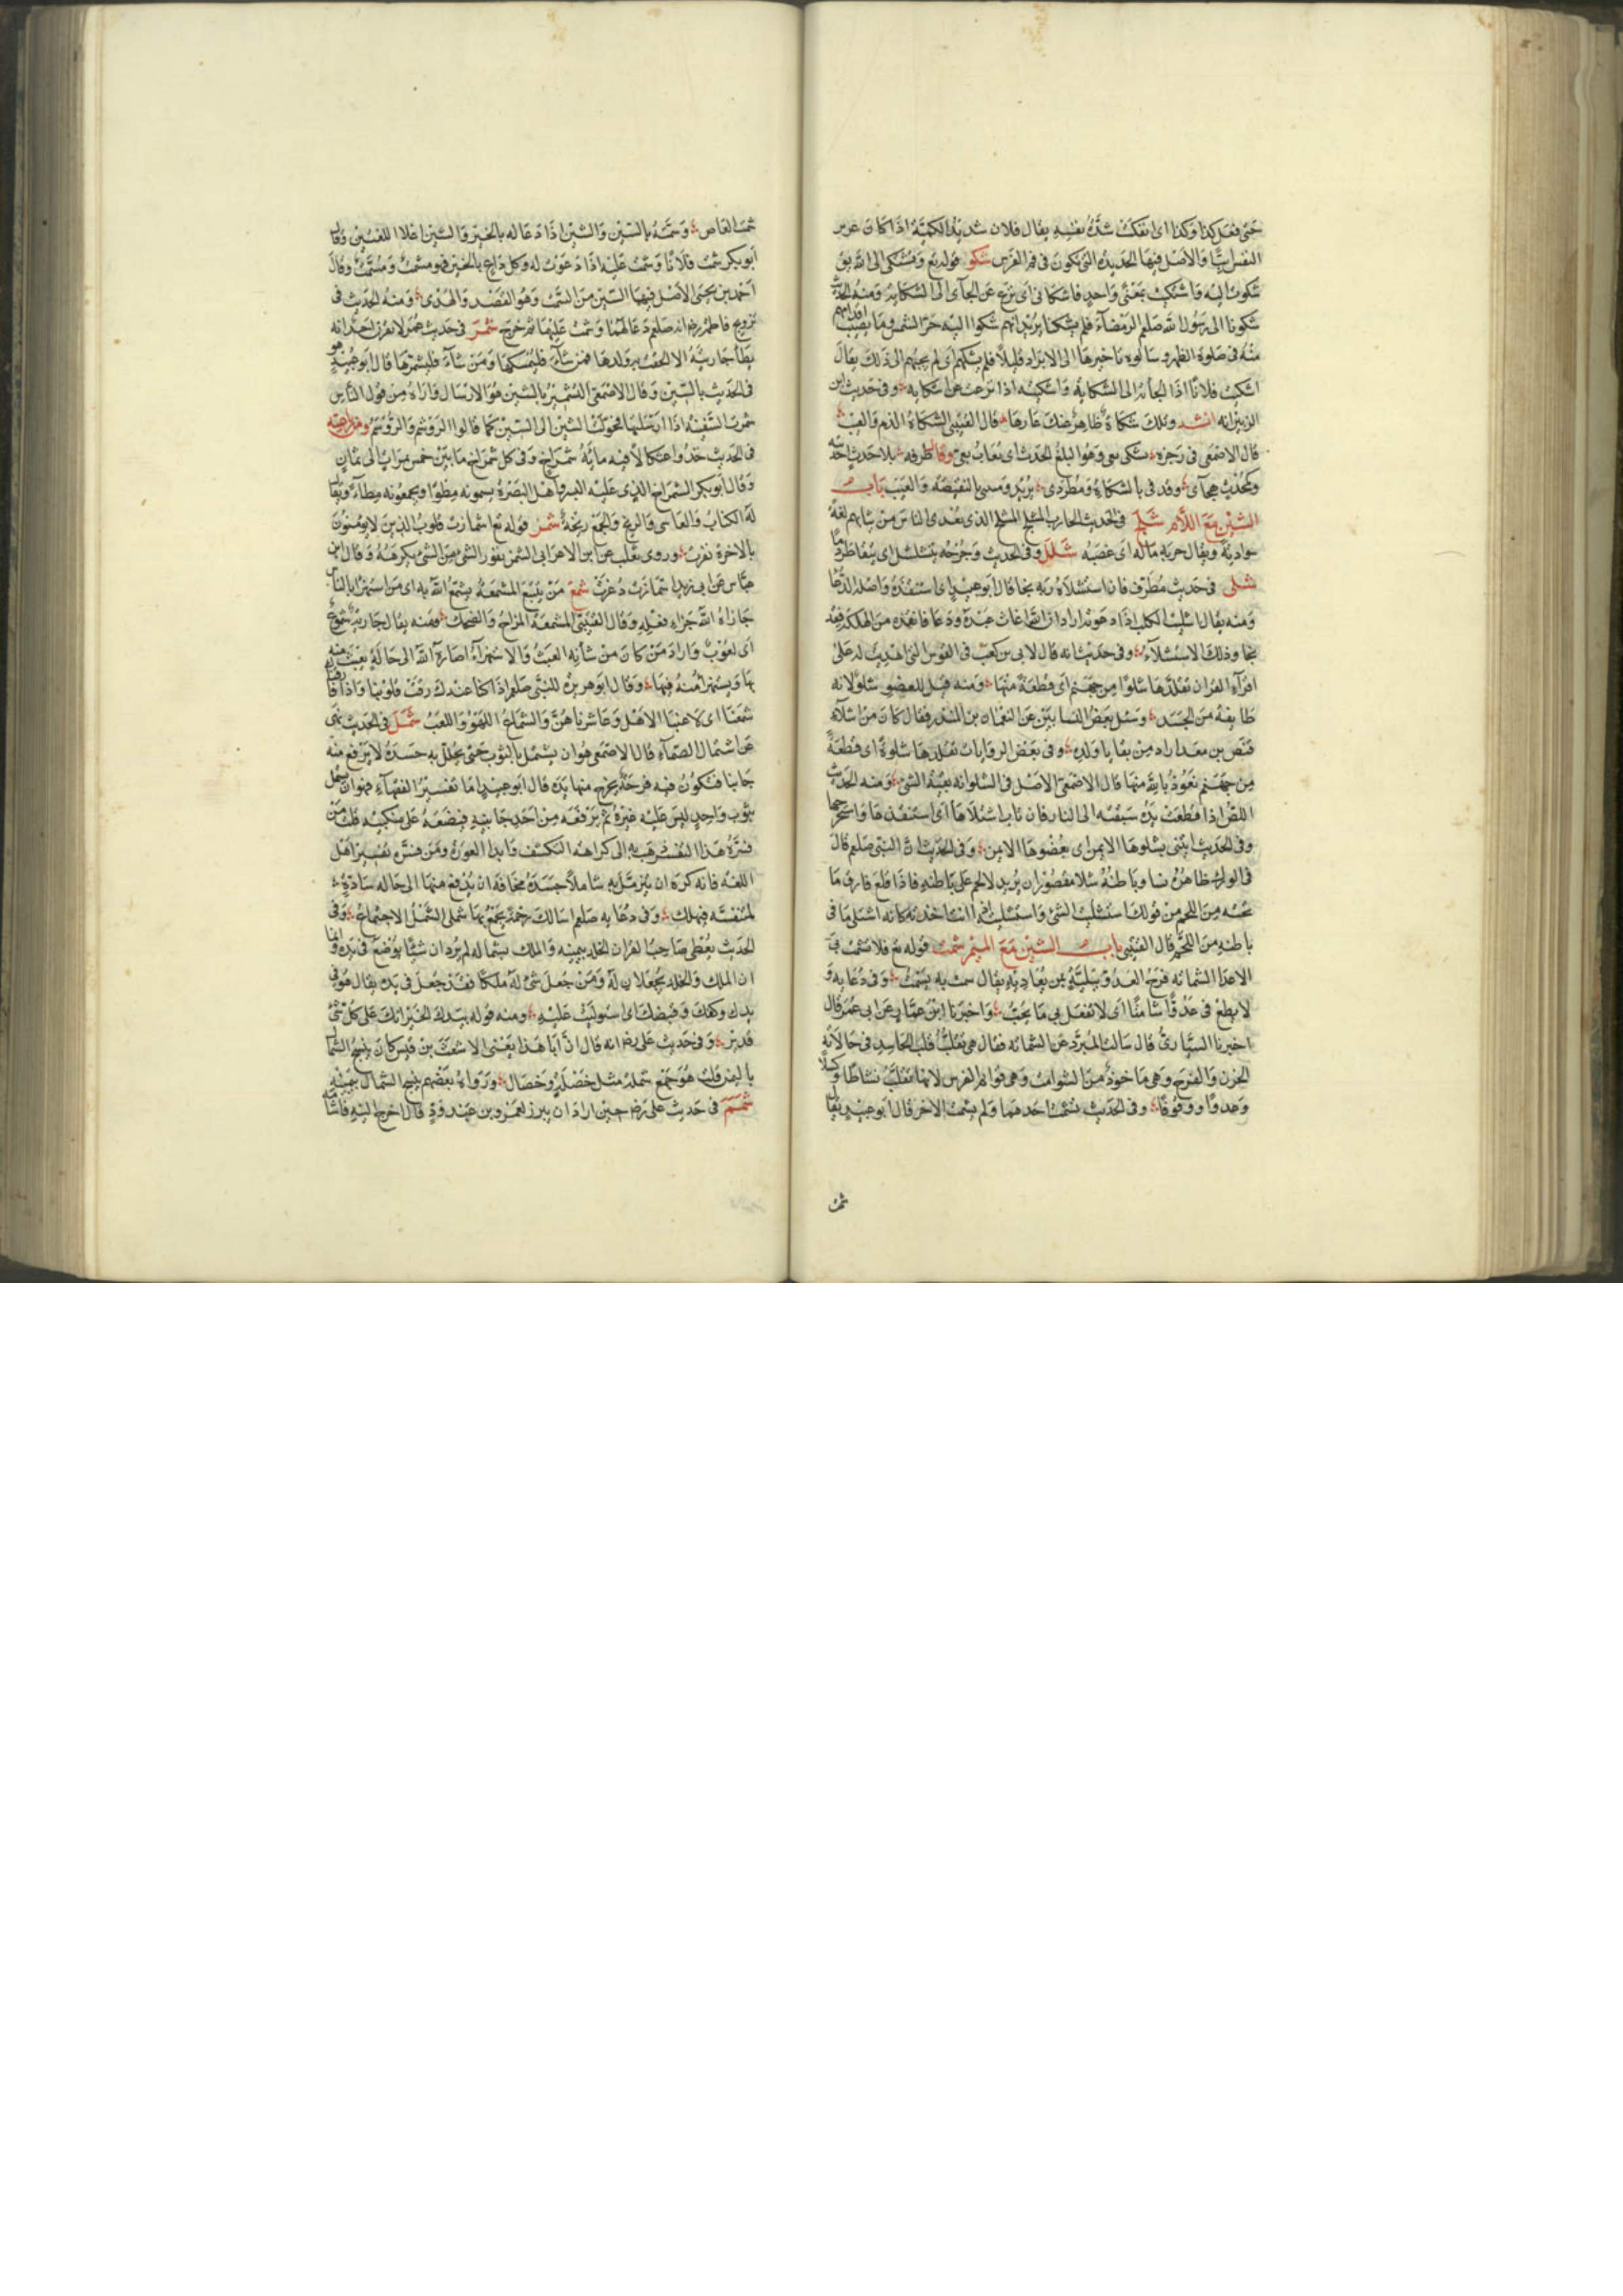 حتى فعل كذا وكذا اى انفكت شدة نفسه يقال فلان شديد الشكيمة اذا كان عزيز
النفس ابيا والاصل فيها الحديدة التى تكون فى فم الفرس شكو قوله تع وتشتكى الى الله يق
شكوت اليه واشتكيت بمعنى واحد فاشكانى اى نزع عن الجآى الى الشكاية ومنه الحديث
شكونا الى رسول الله صلعم الرمضاء فلم يشكنا يريد انهم شكوا اليه حر الشمس وما يصيب اقدامهم
منه فى صلوة الظهر وسالوه تاخيرها الى الابراد قليلا فلم يشكهم اى لم يجبهم الى ذلك يقال
اشكيت فلانا اذا الجأته الى الشكاية واشكيته اذا نزعت عن اشكايه وفى حديث ابن
الزبير انه انشد وتلك شكاة ظاهر عنك عارها قال القتيبى الشكاة الذم والعيب
قال الاصمعى فى رجزه يشكى بعى وهو البليغ الحدث اى يعاب بعى وقال طرفه بلا حدث احدثته
وكمحدث هجآى وقذفى بالشكاة ومطردى يريد ومسى بالنقيصة والعيب باب
الشين مع اللام شلح فى الحديث الحارب المشلح المشلح الذى يعدى الناس من ثيابهم لغة
سوادية ويقال حربه ماله اى غصبه شلل وفى الحديث وجرحه يتشلشل اى يتقاطر دما
شلى فى حديث مطرف فان استشلاه ربه نجا قال ابو عبيد اى استنقذه واصله الدعا
ومنه يقال اشليت الكلب اذا دعوته اراد ان الله اغاث عبده ودعا فانقذه من الهلكة فقد
نجا وذلك الاستشلآء وفى حديث انه قال لابى بن كعب فى القوس التى اهديت له على
اقرآء القران تقلدها شلوا من جهنم اى قطعة منها ومنه قيل للعضو شلو لانه
طايفة من الجسد وسئل بعض النسابين عن النعمان بن المنذر فقال كان من اشلآء
قنص بن معد اراد من بقايا ولده وفى بعض الروايات تقلدها شلوة اى قطعة
من جهنم نعوذ بالله منها قال الاصمعى الاصل فى الشلو انه بقية الشئ ومنه الحديث
اللص اذا قطعت يده سبقته الى النار فان تاب اشتلاها اى استنقذها واستخرجها
وفى الحديث ايتنى بشلوها الايمن اى بعضوها الايمن وفى الحديث ان النبى صلعم قال
فى الورك ظاهره نسا وباطنه شلا مقصوران يريد لا لحم على باطنه فاذا قلع فارق ما
تحته من اللحم من قولك استشليت الشئ واستشليته انما انت اخذته كانه اشتلى ما فى
باطنه من اللحم قال القتيبى باب الشين مع الميم شمت قوله تع فلا تشمت بى
الاعدا الشماتة فرح العدو ببلية من يعاديه يقال شمت به يشمت وفى دعايه و
لا يطع فى عدوا شامتا اى لا تفعل بى ما يحب واخبرنا ابن عمار عن ابى عمر قال
اخبرنا السيارى قال سالت المبرد عن الشماتة فقال هى تقلب قلب الحاسد فى حالاته
الحزن والفرح وهى ماخوذ من الشوامت وهى قوائم الفرس لانها تقلب نشاطا وكسلا
وعدوا ووقوفا وفى الحديث شمت احدهما ولم يشمت الاخر قال ابو عبيد يقال
شمت
شمت العاطس وسمته بالسين والشين اذا دعا له بالخير والشين اعلا اللغتين وقال
ابو بكر شمت فلانا وشمت عليه اذا دعوت له وكل داع بالخير فهو مشمت ومسمت وقال
احمد بن يحيى الاصل فيهما السين من السمت وهو القصد والهدى ومنه الحديث فى
تزويج فاطمة رض انه صلعم دعا لهما وشمت عليهما ثم خرج شمر فى حديث عمر لا يقرن احد انه
يطأ جاريته الا لحقت به ولدها فمن شآء فليمسكها ومن شآء فليشمرها قال ابو عبيد هو
فى الحديث بالسين وقال الاصمعى التشمير بالشين هو الارسال واراه من قول الناس
شمرت السفينة اذا ارسلتها فحولت الشين الى السين كما قالوا الروشم والروسم
فى الحديث خذوا عثكالا فيه ماية شمراخ وفى كل شمراخ ما بين خمس مرات الى ثمان
وقال ابو بكر الشمراخ الذى عليه البسر واهل البصرة يسمونه مطوا ويجمعونه مطآء ويقال
له الكناب والعاسى والجمع شمز قوله تع اشمازت قلوب الذين لا يومنون
بالاخرة نفرت وروى ثعلب عن ابن الاعرابى الشمز نفور الشئ من الشئ يكرهه وقال ابن
عباس عن ابى زيد اشمازت ذعرت شمع من يتبع المشمعة يشمع الله به اى من استهزا بالناس
جازاه الله جزاء فعله وقال القتيبى المشمعة المزاح والضحك وفيه يقال جارية شموع
اى لعوب واراد من كان من شأنه العبث والاستهزآء اصاره الله الى حالة يعبث به
فيها ويستهزا منه فيها وقال ابو هريرة للنبى صلعم اذا كنا عندك رقت قلوبنا واذا فارقناك
شمعنا اى لاعبنا الاهل وعاشرناهن والشماع اللهو واللعب شمل فى الحديث نهى
عن اشتمال الصمآء قال الاصمعى هو ان يشتمل بالثوب حتى يجلل به جسده لا يرفع منه
جانبا فتكون فيه فرجة يخرج منها يده قال ابو عبيد اما تفسير الفقهآء فهو ان يشتمل
بثوب واحد ليس عليه غيره ثم يرفعه من احد جانبيه فيضعه على منكبيه قلت من
فسره هذا التفسير ذهب به الى كراهة التكشف وابدا العورة ومن فسره تفسير اهل
اللغة فانه كره ان يتزمل به شاملا جسده مخافة ان يدفع منها الى حالة سادة
لمتنفسه فيهلك وفى دعايه صلعم اسالك رحمة تجمع بها شملى الشمل الاجتماع وفى
الحديث يعطى صاحب القران الخلد بيمينه والملك بشماله لم يرد ان شيئا يوضع فى يده وانما
ان الملك والخلد يجعلان له ومن جعل شئ له ملكا فقد جعل فى يده يقال هو فى
يدك وكفك وقبضك اى استوليت عليه ومنه قوله بيدك الخير انك على كل شئ
قدير وفى حديث على رض انه قال ان ابا هذا يعنى الاشعث بن قيس كان ينسج الشمال
باليمن قلت هو جمع شملة مثل خصلة وخصال ورواه بعضهم ينسج الشمال بيمينه
شمم فى حديث على رض حين اراد ان يبرز لعمرو بن عبد ود قال اخرج اليه فاشامه